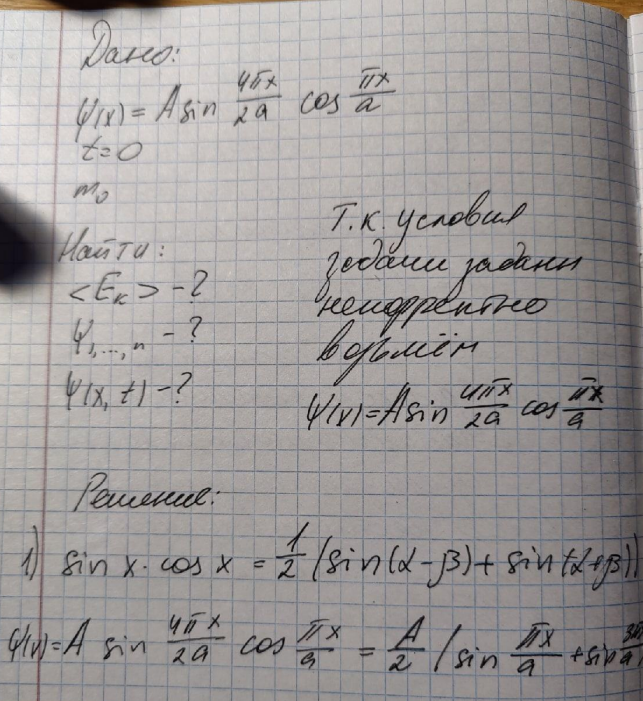 Дано:
ψ(x) = A sin 4πx/2a cos πx/a
t=0
m₀
Найти:
<Eₖ> - ?
Ψ₁,...,ₙ - ?
Ψ(x, t) - ?
Т.к. условия
задачи заданы
некорректно
возьмём
Ψ(x) = A sin 4πx/2a cos πx/a
Решение:
1) sin x · cos x = 1/2 (sin(α-β) + sin(α+β))
Ψ(x) = A sin 4πx/2a cos πx/a = A/2 (sin πx/a + sin 3π/a